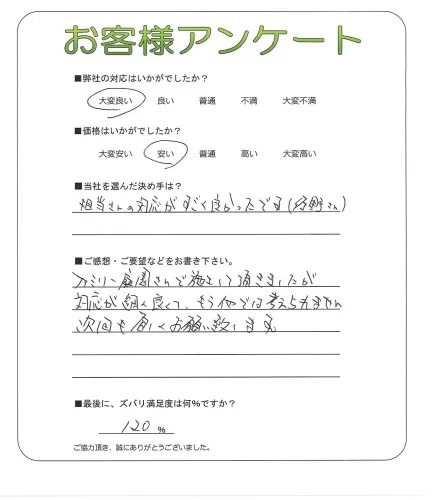 お客様アンケート
■弊社の対応はいかがでしたか？
大変良い 良い 普通 不満 大変不満
■価格はいかがでしたか？
大変安い 安い 普通 高い 大変高い
■当社を選んだ決め手は？
担当さんの対応がすごく良かったです(野さん)
■ご感想・ご要望などをお書き下さい。
ファミリー庭園さんで施工して頂きましたが
対応が細く良くて、もう他では考えられません
次回も宜しくお願い致します
■最後に、ズバリ満足度は何%ですか？
120 %
ご協力頂き、誠にありがとうございました。